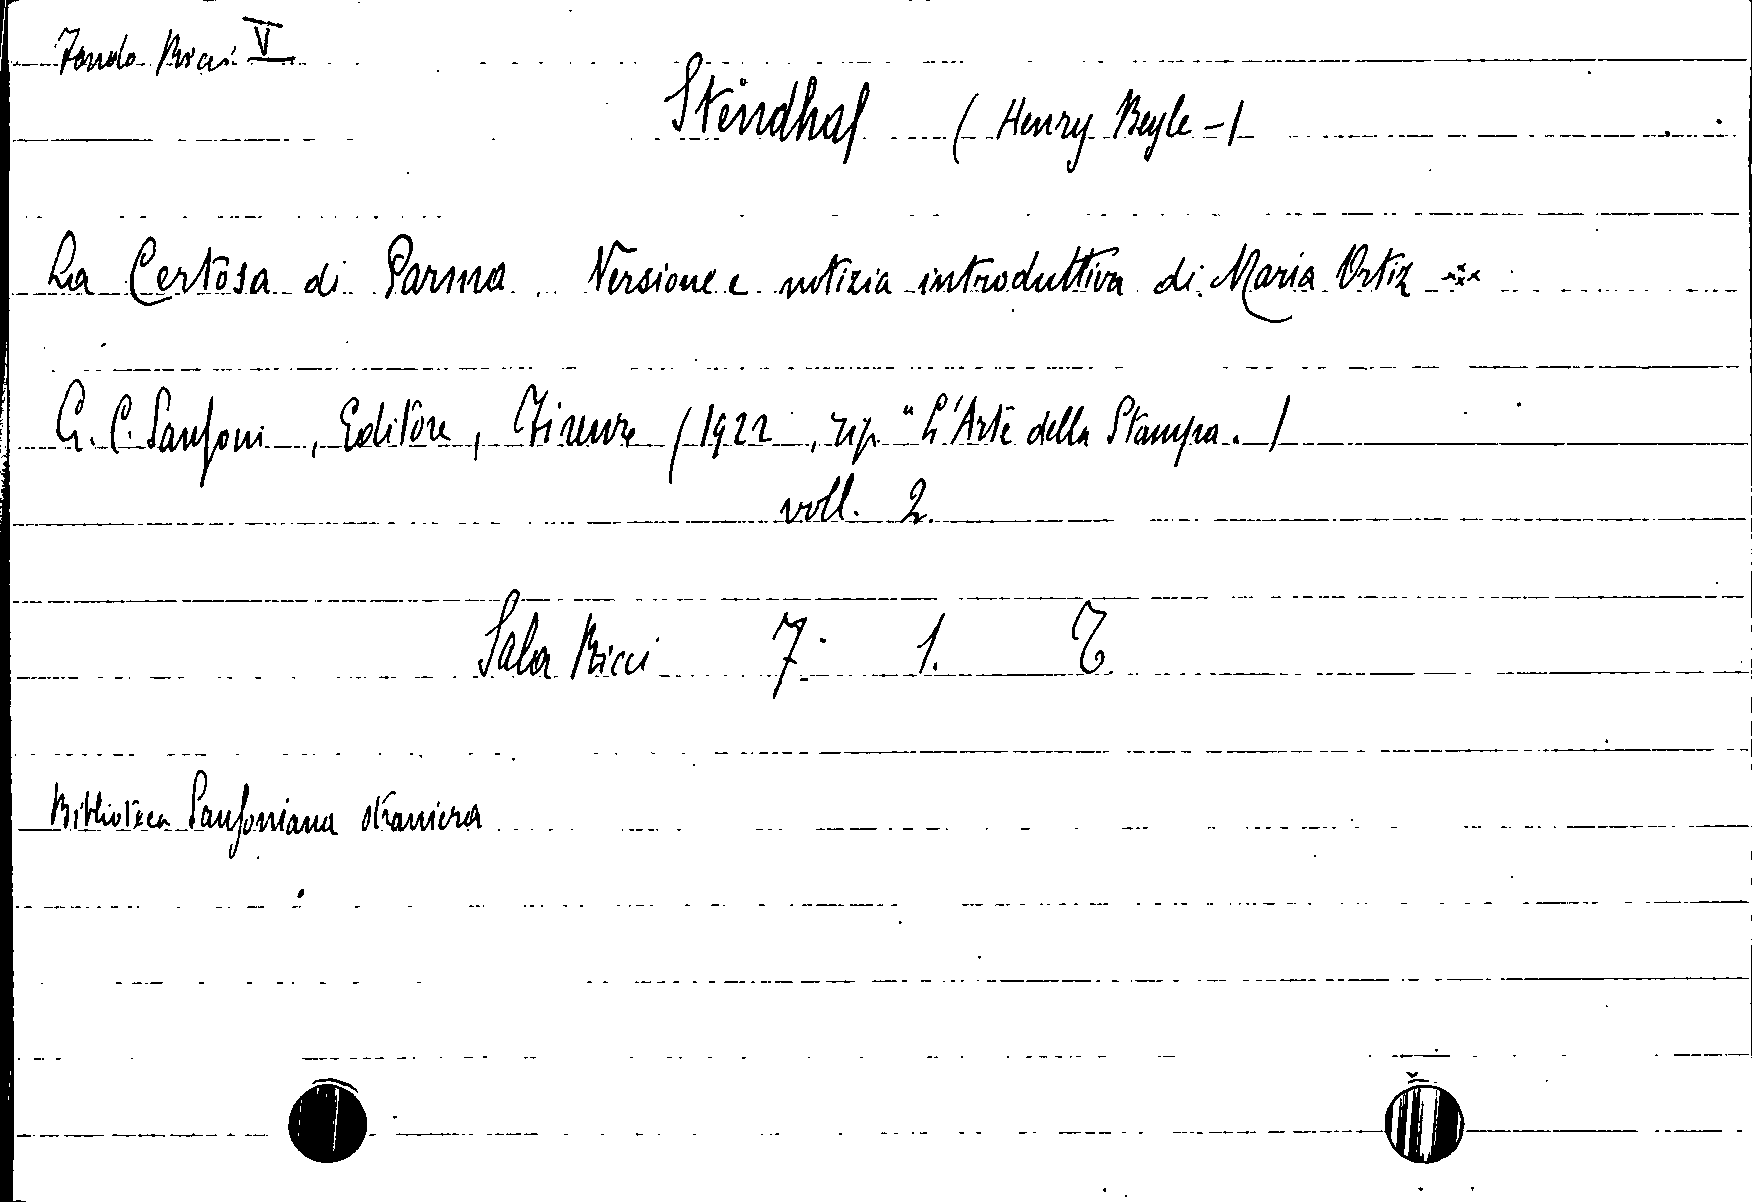 Fondo Ricci V
Stendhal ( Henry Beyle - )
La Certosa di Parma. Versione e notizia introduttiva di Maria Ortiz ***
G. C. Sansoni, Editore, Firenze (1922, tip. "L'Arte della Stampa. )
voll. 2.
Sala Ricci 7. 1.
Biblioteca Sansoniana straniera